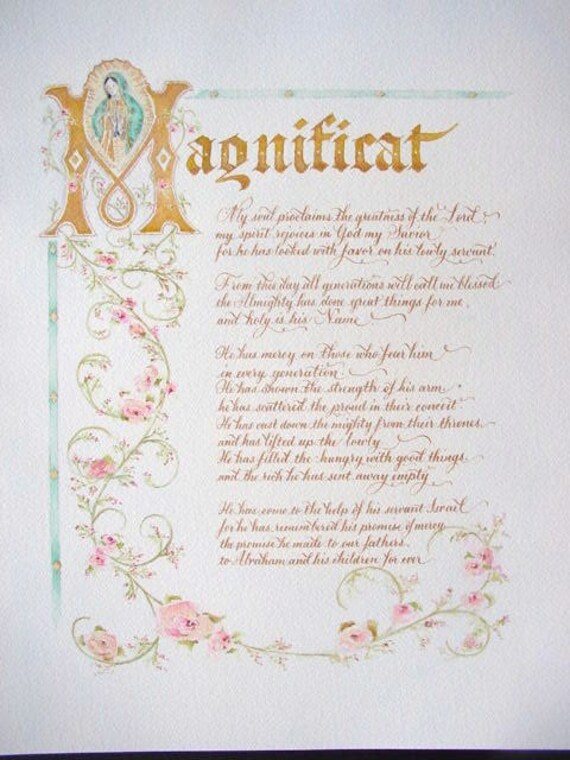 Magnificat
My soul proclaims the greatness of the Lord,
my spirit rejoices in God my Savior
for he has looked with favor on his lowly servant.
From this day all generations will call me blessed
the Almighty has done great things for me,
and holy is his Name
He has mercy on those who fear him
in every generation
He has shown the strength of his arm,
he has scattered the proud in their conceit
He has cast down the mighty from their thrones,
and has lifted up the lowly
He has filled the hungry with good things
and the rich he has sent away empty
He has come to the help of his servant Israel
for he has remembered his promise of mercy,
the promise he made to our fathers,
to Abraham and his children for ever